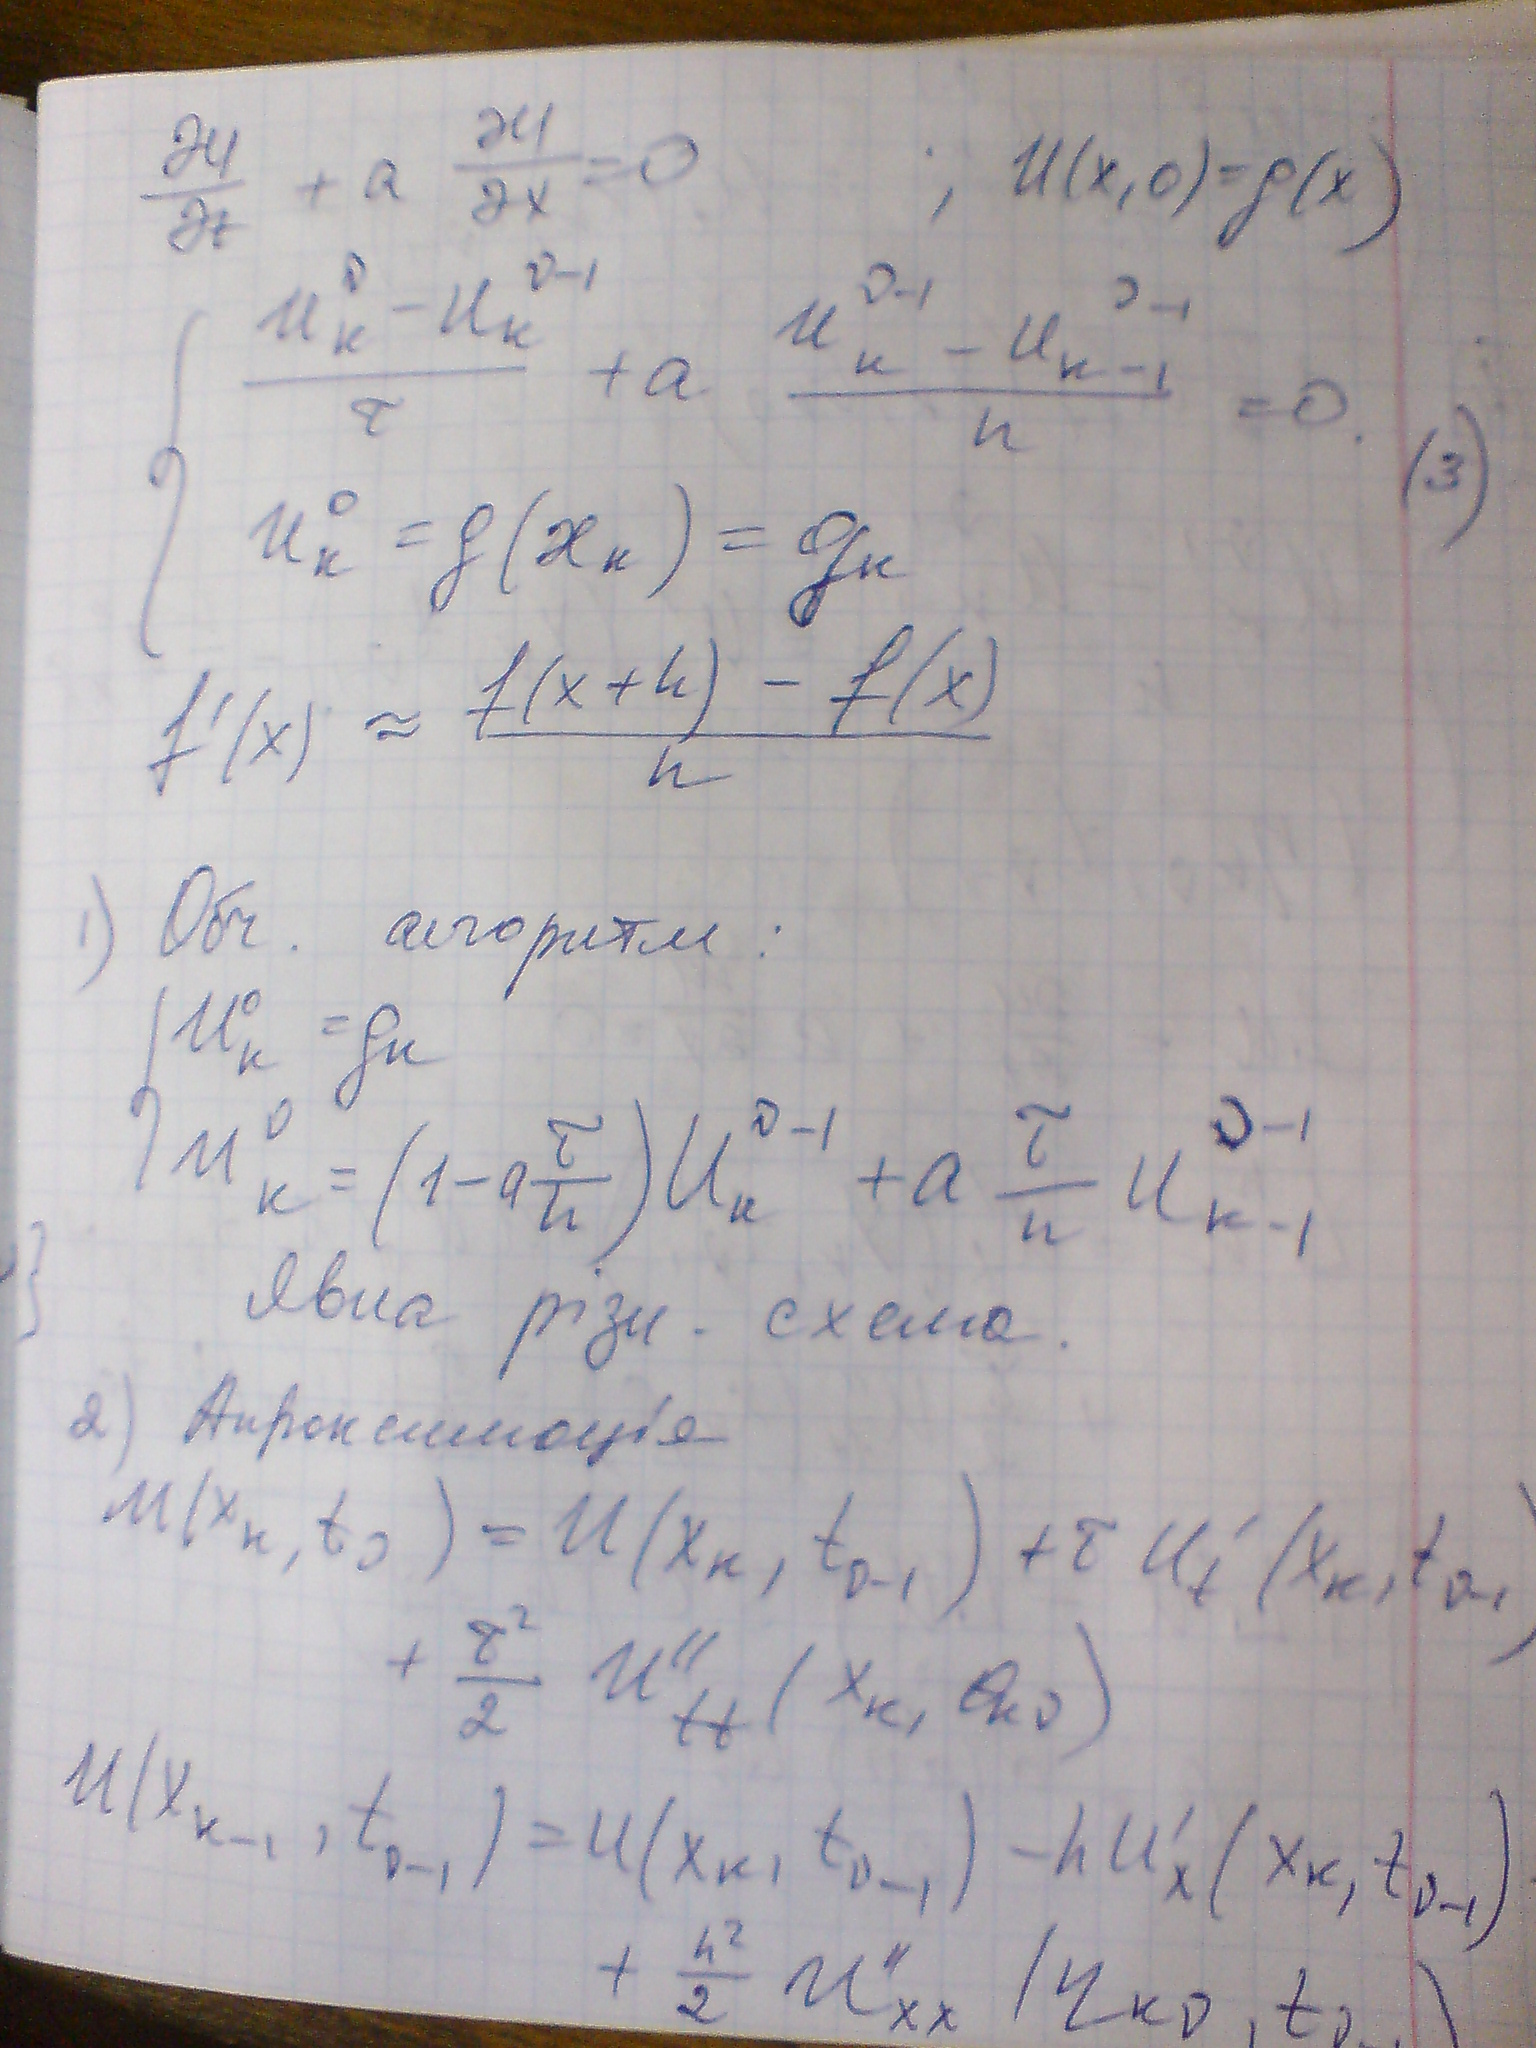 ∂u/∂t + a ∂u/∂x = 0 ; u(x,0)=g(x)
{ (u_k^ν − u_k^{ν−1})/τ + a (u_k^{ν−1} − u_{k−1}^{ν−1})/h = 0. (3)
u_k^0 = g(x_k) = g_k
f'(x) ≈ (f(x+h) − f(x))/h
1) Обч. алгоритм:
{ u_k^0 = g_k
u_k^ν = (1−a τ/h) u_k^{ν−1} + a τ/h u_{k−1}^{ν−1}
Явна різн. схема.
2) Апроксимація
u(x_k, t_ν) = u(x_k, t_{ν−1}) + τ u'_t (x_k, t_{ν−1})
+ τ²/2 u''_{tt} (x_k, θ_{kν})
u(x_{k−1}, t_{ν−1}) = u(x_k, t_{ν−1}) − h u'_x (x_k, t_{ν−1})
+ h²/2 u''_{xx} (η_{kν}, t_{ν−1})